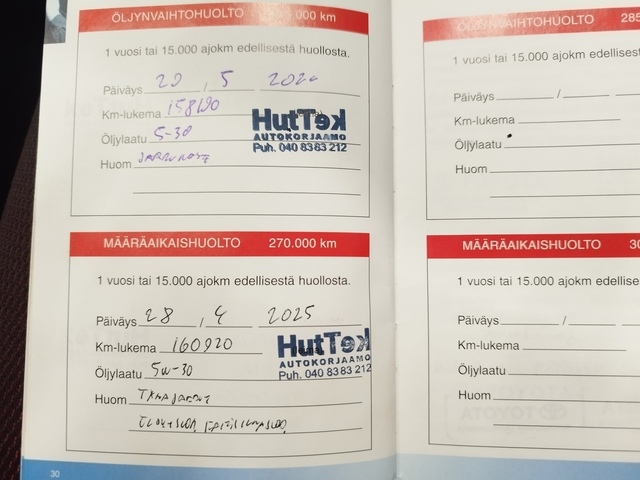 ÖLJYNVAIHTOHUOLTO 000 km
1 vuosi tai 15.000 ajokm edellisestä huollosta.
Päiväys 29 , 5
Km-lukema
Öljylaatu 5-30
Huom
HutTek
AUTOKORJAAMO
Puh. 040 8383 212
MÄÄRÄAIKAISHUOLTO 270.000 km
1 vuosi tai 15.000 ajokm edellisestä huollosta.
Päiväys 28 , 4 2025
Km-lukema 160920
Öljylaatu 5W-30
Huom
HutTek
AUTOKORJAAMO
Puh. 040 8383 212
30
ÖLJYNVAIHTOHUOLTO 285
1 vuosi tai 15.000 ajokm edellisest
Päiväys /
Km-lukema
Öljylaatu
Huom
MÄÄRÄAIKAISHUOLTO 30
1 vuosi tai 15.000 ajokm edellises
Päiväys /
Km-lukema
Öljylaatu
Huom
TOYOTA